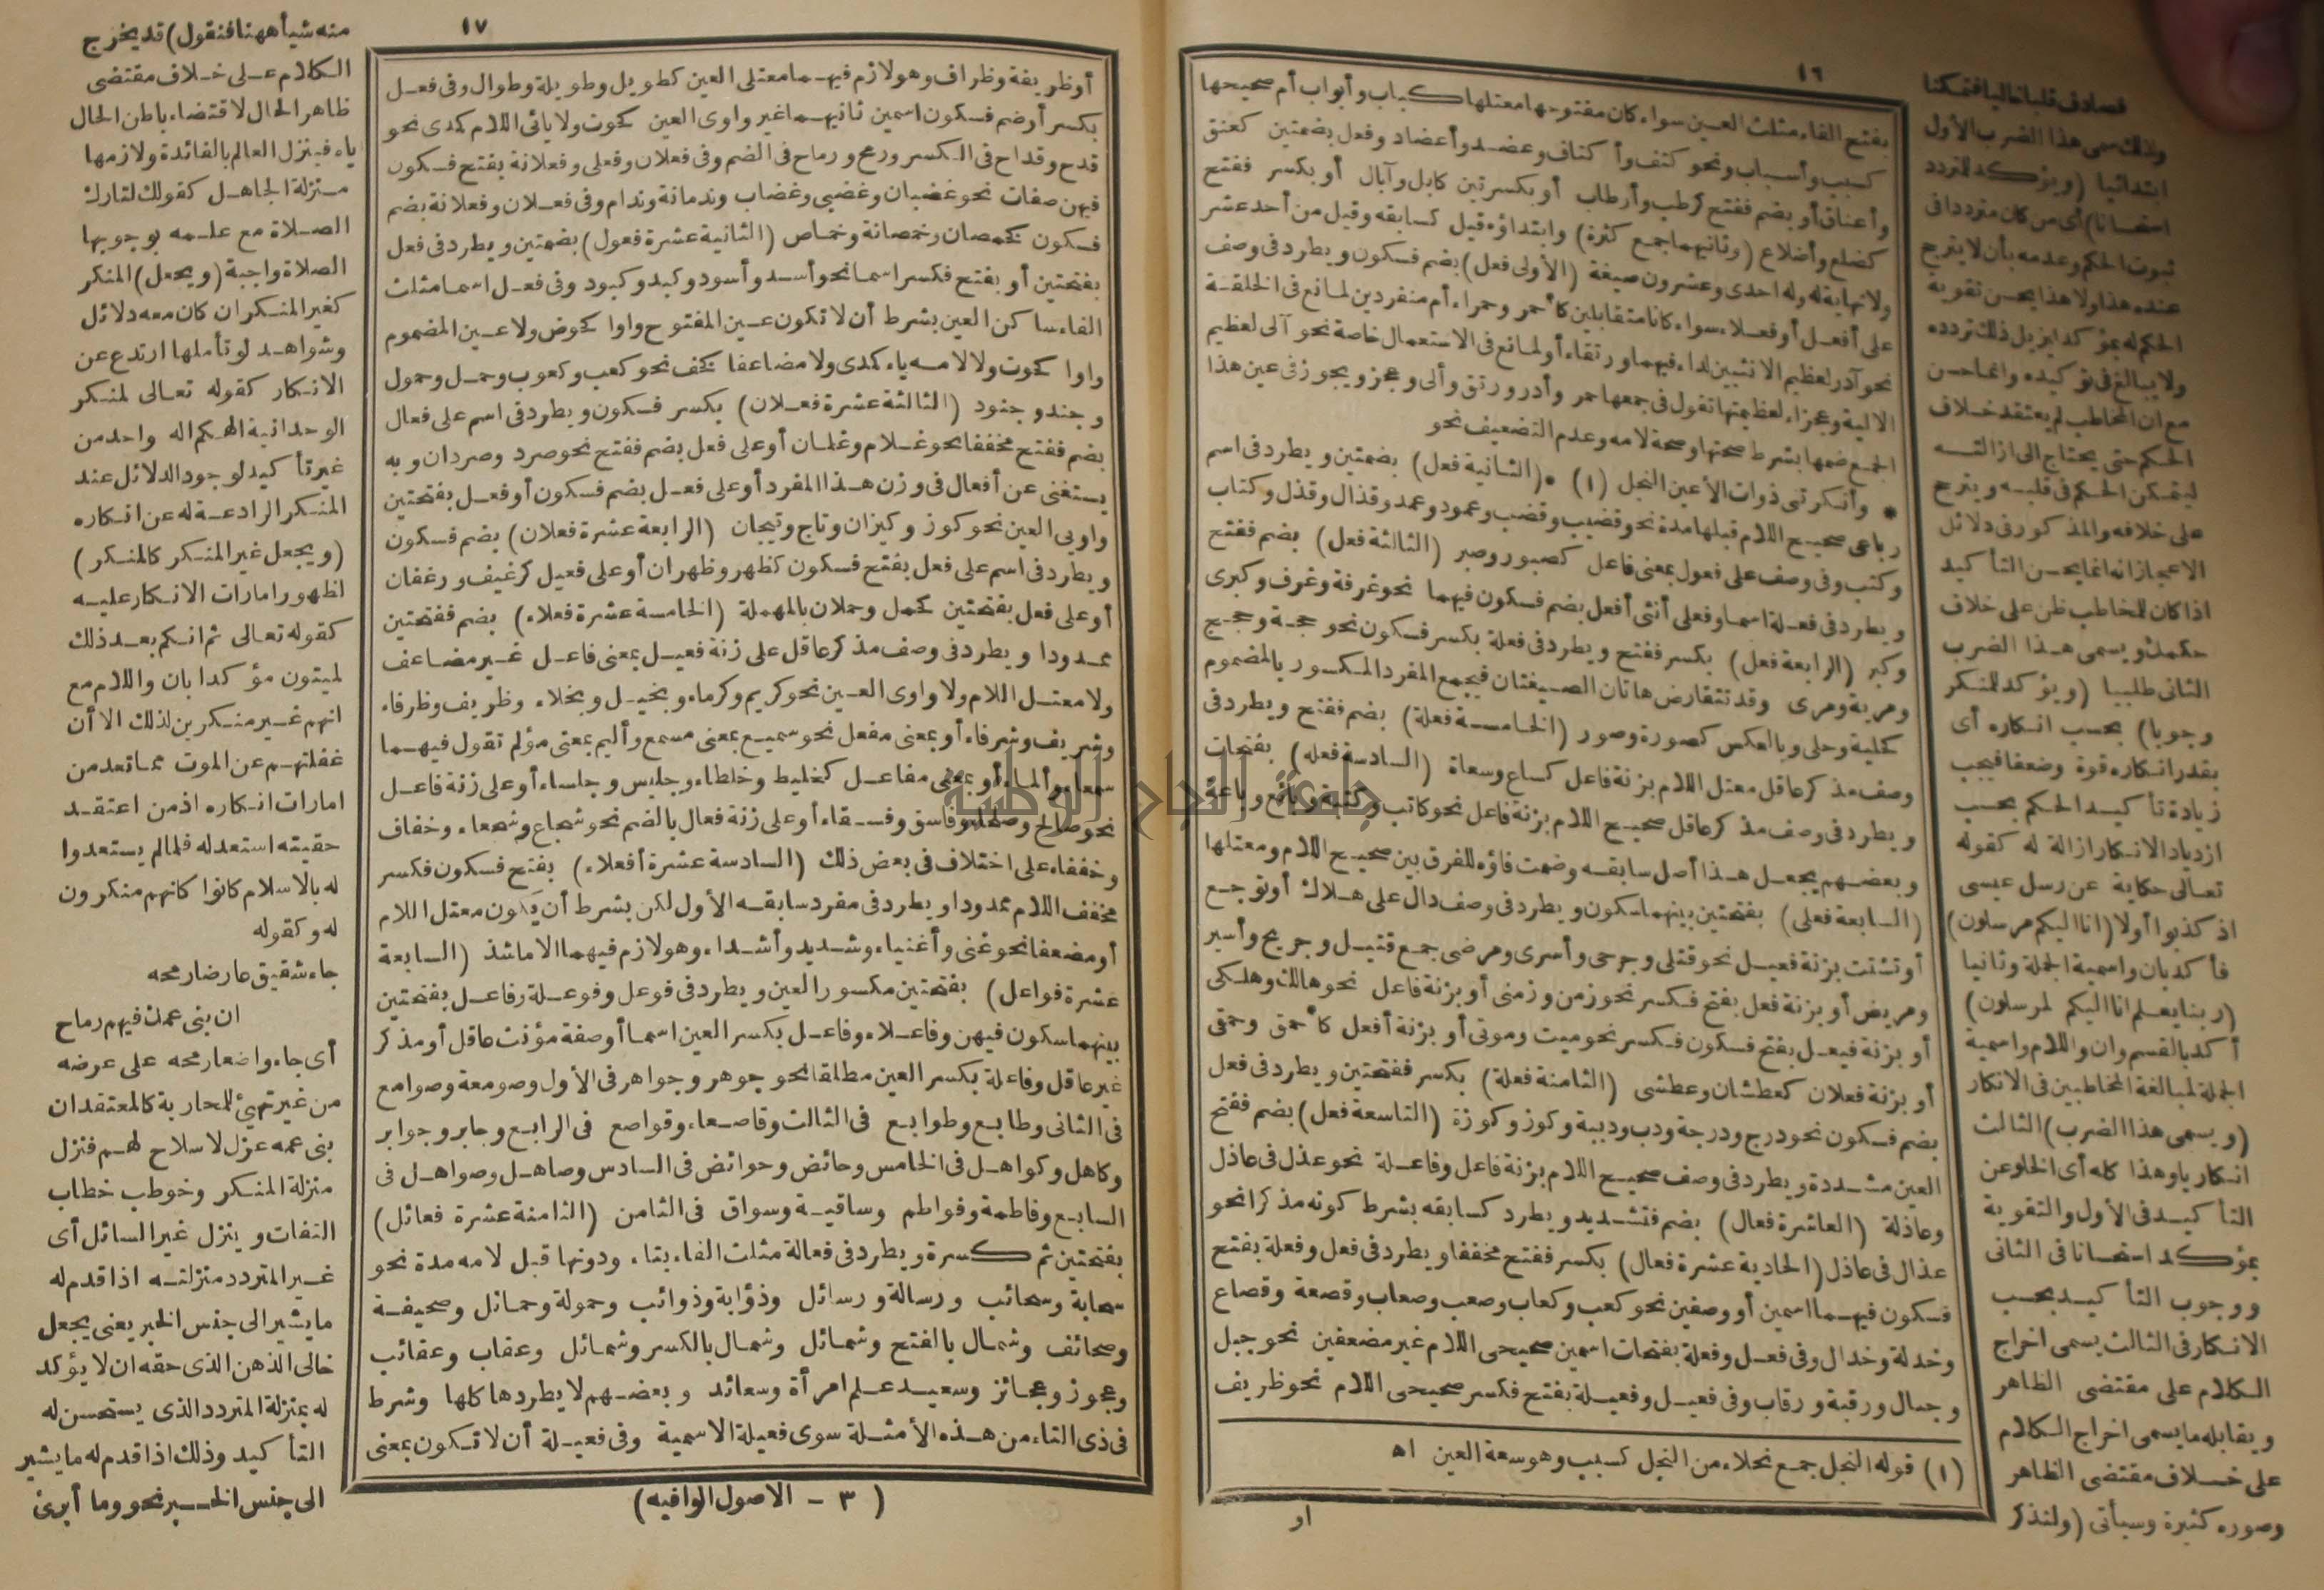 ١٦
بفتح الفاء مثلث العين سواء كان مفتوحها معتلها كباب وأبواب أم صحيحها
كسبب وأسباب ونحو كتف وأكتاف وعضد وأعضاد وفعل بضمتين كعنق
وأعناق أو بضم ففتح كرطب وأرطاب أو بكسرتين كابل وآبال أو بكسر ففتح
كضلع وأضلاع (وثانيهما جمع كثرة) وابتداؤه قيل كسابقه وقيل من أحد عشر
ولا نهاية له وله احدى وعشرون صيغة (الأولى فعل) بضم فسكون ويطرد فى وصف
على أفعل أو فعلاء سواء كانا متقابلين كأحمر وحمراء أم منفردين لمانع فى الخلقة
نحو آدر لعظيم الانثيين لداء فيهما ورتقاء أو لمانع فى الاستعمال خاصة نحو آلى لعظيم
الالية وعجزاء لعظيمتها تقول فى جمعها حمر وأدر ورتق وألى وعجز ويجوز فى عين هذا
الجمع ضمها بشرط صحتها وصحة لامه وعدم التضعيف نحو
* وأنكرتنى ذوات الأعين النجل (١) * (الثانية فعل) بضمتين ويطرد فى اسم
رباعى صحيح اللام قبلها مدة نحو قضيب وقضب وعمود وعمد وقذال وقذل وكتاب
وكتب وفى وصف على فعول بمعنى فاعل كصبور وصبر (الثالثة فعل) بضم ففتح
ويطرد فى فعلة اسما وفعلى أنثى أفعل بضم فسكون فيهما نحو غرفة وغرف وكبرى
وكبر (الرابعة فعل) بكسر ففتح ويطرد فى فعلة بكسر فسكون نحو حجة وحجج
ومرية ومرى وقد تتقارض هاتان الصيغتان فيجمع المفرد المكسور بالمضموم
كحلية وحلى وبالعكس كصورة وصور (الخامسة فعلة) بضم ففتح ويطرد فى
وصف مذكر عاقل معتل اللام بزنة فاعل كساع وسعاة (السادسة فعلة) بفتحات
ويطرد فى وصف مذكر عاقل صحيح اللام بزنة فاعل نحو كاتب وكتبة وبائع وباعة
وبعضهم يجعل هذا أصل سابقه وضمت فاؤه للفرق بين صحيح اللام ومعتلها
(السابعة فعلى) بفتحتين بينهما سكون ويطرد فى وصف دال على هلاك أو توجع
أو تشتت بزنة فعيل نحو قتلى وجرحى وأسرى ومرضى جمع قتيل وجريح وأسير
ومريض أو بزنة فعل بفتح فكسر نحو زمن وزمنى أو بزنة فاعل نحو هالك وهلكى
أو بزنة فيعل بفتح فسكون فكسر نحو ميت وموتى أو بزنة أفعل كأحمق وحمقى
أو بزنة فعلان كعطشان وعطشى (الثامنة فعلة) بكسر ففتحتين ويطرد فى فعل
بضم فسكون نحو درج ودرجة ودب ودببة وكوز وكوزة (التاسعة فعل) بضم ففتح
العين مشددة ويطرد فى وصف صحيح اللام بزنة فاعل وفاعلة نحو عذل فى عاذل
وعاذلة (العاشرة فعال) بضم فتشديد ويطرد كسابقه بشرط كونه مذكرا نحو
عذال فى عاذل (الحادية عشرة فعال) بكسر ففتح مخففا ويطرد فى فعل وفعلة بفتح
فسكون فيهما اسمين أو وصفين نحو كعب وكعاب وصعب وصعاب وقصعة وقصاع
وخدلة وخدال وفى فعل وفعلة بفتحات اسمين صحيحى اللام غير مضعفين نحو جبل
وجبال ورقبة ورقاب وفى فعيل وفعيلة بفتح فكسر صحيحى اللام نحو ظريف
(١) قوله النجل جمع نجلاء من النجل كسبب وهو سعة العين اه
او
فصادف قلبا خاليا فتمكنا
ولذلك سمى هذا الضرب الأول
ابتدائيا (ويؤكد للمتردد
استحسانا) أى من كان مترددا فى
ثبوت الحكم وعدمه بأن لا يترجح
عنده هذا ولا هذا يحسن تقوية
الحكم له بمؤكد ليزيل ذلك تردده
ولا يبالغ فى توكيده وانما حسن
مع ان المخاطب لم يعتقد خلاف
الحكم حتى يحتاج الى ازالته
ليتمكن الحكم فى قلبه ويترجح
على خلافه والمذكور فى دلائل
الاعجاز انه انما يحسن التأكيد
اذا كان للمخاطب ظن على خلاف
حكمك ويسمى هذا الضرب
الثانى طلبيا (ويؤكد للمنكر
وجوبا) بحسب انكاره أى
بقدر انكاره قوة وضعفا فيجب
زيادة تأكيد الحكم بحسب
ازدياد الانكار ازالة له كقوله
تعالى حكاية عن رسل عيسى
اذ كذبوا أولا (انا اليكم مرسلون)
فأكد بان واسمية الجملة وثانيا
(ربنا يعلم انا اليكم لمرسلون)
أكد بالقسم وان واللام واسمية
الجملة لمبالغة المخاطبين فى الانكار
(ويسمى هذا الضرب) الثالث
انكاريا وهذا كله أى الخلو عن
التأكيد فى الأول والتقوية
بمؤكد استحسانا فى الثانى
ووجوب التأكيد بحسب
الانكار فى الثالث يسمى اخراج
الكلام على مقتضى الظاهر
ويقابله ما يسمى اخراج الكلام
على خلاف مقتضى الظاهر
وصوره كثيرة وسيأتى (ولنذكر
١٧
أو ظريفة وظراف وهو لازم فيهما معتلى العين كطويل وطويلة وطوال وفى فعل
بكسر أو ضم فسكون اسمين ثانيهما غير واوى العين كحوت ولا يائى اللام كمدى نحو
قدح وقداح فى الكسر ورمح ورماح فى الضم وفى فعلان وفعلى وفعلانة بفتح فسكون
فيهن صفات نحو غضبان وغضبى وغضاب وندمانة وندام وفى فعلان وفعلانة بضم
فسكون كخمصان وخمصانة وخماص (الثانية عشرة فعول) بضمتين ويطرد فى فعل
بفتحتين أو بفتح فكسر اسما نحو أسد وأسود وكبد وكبود وفى فعل اسما مثلث
الفاء ساكن العين بشرط أن لا تكون عين المفتوح واوا كحوض ولا عين المضموم
واوا كحوت ولا لامه ياء كمدى ولا مضاعفا كخف نحو كعب وكعوب وحمل وحمول
وجند وجنود (الثالثة عشرة فعلان) بكسر فسكون ويطرد فى اسم على فعال
بضم ففتح مخففا نحو غلام وغلمان أو على فعل بضم ففتح نحو صرد وصردان وبه
يستغنى عن أفعال فى وزن هذا المفرد أو على فعل بضم فسكون أو فعل بفتحتين
واويى العين نحو كوز وكيزان وتاج وتيجان (الرابعة عشرة فعلان) بضم فسكون
ويطرد فى اسم على فعل بفتح فسكون كظهر وظهران أو على فعيل كرغيف ورغفان
أو على فعل بفتحتين كحمل وحملان بالمهملة (الخامسة عشرة فعلاء) بضم ففتحتين
ممدودا ويطرد فى وصف مذكر عاقل على زنة فعيل بمعنى فاعل غير مضاعف
ولا معتل اللام ولا واوى العين نحو كريم وكرماء وبخيل وبخلاء وظريف وظرفاء
وشريف وشرفاء أو بمعنى مفعل نحو سميع بمعنى مسمع وأليم بمعنى مؤلم تقول فيهما
سمعاء وألماء أو بمعنى مفاعل كخليط وخلطاء وجليس وجلساء أو على زنة فاعل
نحو صالح وصلحاء وفاسق وفسقاء أو على زنة فعال بالضم نحو شجاع وشجعاء وخفاف
وخففاء على اختلاف فى بعض ذلك (السادسة عشرة أفعلاء) بفتح فسكون فكسر
مخفف اللام ممدودا ويطرد فى مفرد سابقه الأول لكن بشرط أن يكون معتل اللام
أو مضعفا نحو غنى وأغنياء وشديد وأشداء وهو لازم فيهما الا ما شذ (السابعة
عشرة فواعل) بفتحتين مكسور العين ويطرد فى فوعل وفوعلة وفاعل بفتحتين
بينهما سكون فيهن وفاعلاء وفاعل بكسر العين اسما أو صفة مؤنث عاقل أو مذكر
غير عاقل وفاعلة بكسر العين مطلقا نحو جوهر وجواهر فى الأول وصومعة وصوامع
فى الثانى وطابع وطوابع فى الثالث وقاصعاء وقواصع فى الرابع وجابر وجوابر
وكاهل وكواهل فى الخامس وحائض وحوائض فى السادس وصاهل وصواهل فى
السابع وفاطمة وفواطم وساقية وسواق فى الثامن (الثامنة عشرة فعائل)
بفتحتين ثم كسرة ويطرد فى فعالة مثلث الفاء بتاء ودونها قبل لامه مدة نحو
سحابة وسحائب ورسالة ورسائل وذؤابة وذوائب وحمولة وحمائل وصحيفة
وصحائف وشمال بالفتح وشمائل وشمال بالكسر وشمائل وعقاب وعقائب
وعجوز وعجائز وسعيد علم امرأة وسعائد وبعضهم لا يطردها كلها وشرط
فى ذى التاء من هذه الأمثلة سوى فعيلة الاسمية وفى فعيلة أن لا تكون بمعنى
(٣ - الاصول الوافيه)
منه شيأ ههنا فنقول) قد يخرج
الكلام على خلاف مقتضى
ظاهر الحال لاقتضاء باطن الحال
ياه فينزل العالم بالفائدة ولازمها
منزلة الجاهل كقولك لتارك
الصلاة مع علمه بوجوبها
الصلاة واجبة (ويجعل) المنكر
كغير المنكر ان كان معه دلائل
وشواهد لو تأملها ارتدع عن
الانكار كقوله تعالى لمنكر
الوحدانية الهكم اله واحد من
غير تأكيد لوجود الدلائل عند
المنكر الرادعة له عن انكاره
(ويجعل غير المنكر كالمنكر)
لظهور امارات الانكار عليه
كقوله تعالى ثم انكم بعد ذلك
لميتون مؤكدا بان واللام مع
انهم غير منكرين لذلك الا أن
غفلتهم عن الموت مما تعد من
امارات انكاره اذ من اعتقد
حقيته استعد له فلما لم يستعدوا
له بالاسلام كانوا كانهم منكرون
له وكقوله
جاء شقيق عارضا رمحه
ان بنى عمك فيهم رماح
أى جاء واضعا رمحه على عرضه
من غير تهئ للمحاربة كالمعتقد ان
بنى عمه عزل لا سلاح لهم فنزل
منزلة المنكر وخوطب خطاب
التفات وينزل غير السائل أى
غير المتردد منزلته اذا قدم له
ما يشير الى جنس الخبر يعنى يجعل
خالى الذهن الذى حقه ان لا يؤكد
له بمنزلة المتردد الذى يستحسن له
التأكيد وذلك اذا قدم له ما يشير
الى جنس الخبر نحو وما أبرئ
جامعة النجاح الوطنية